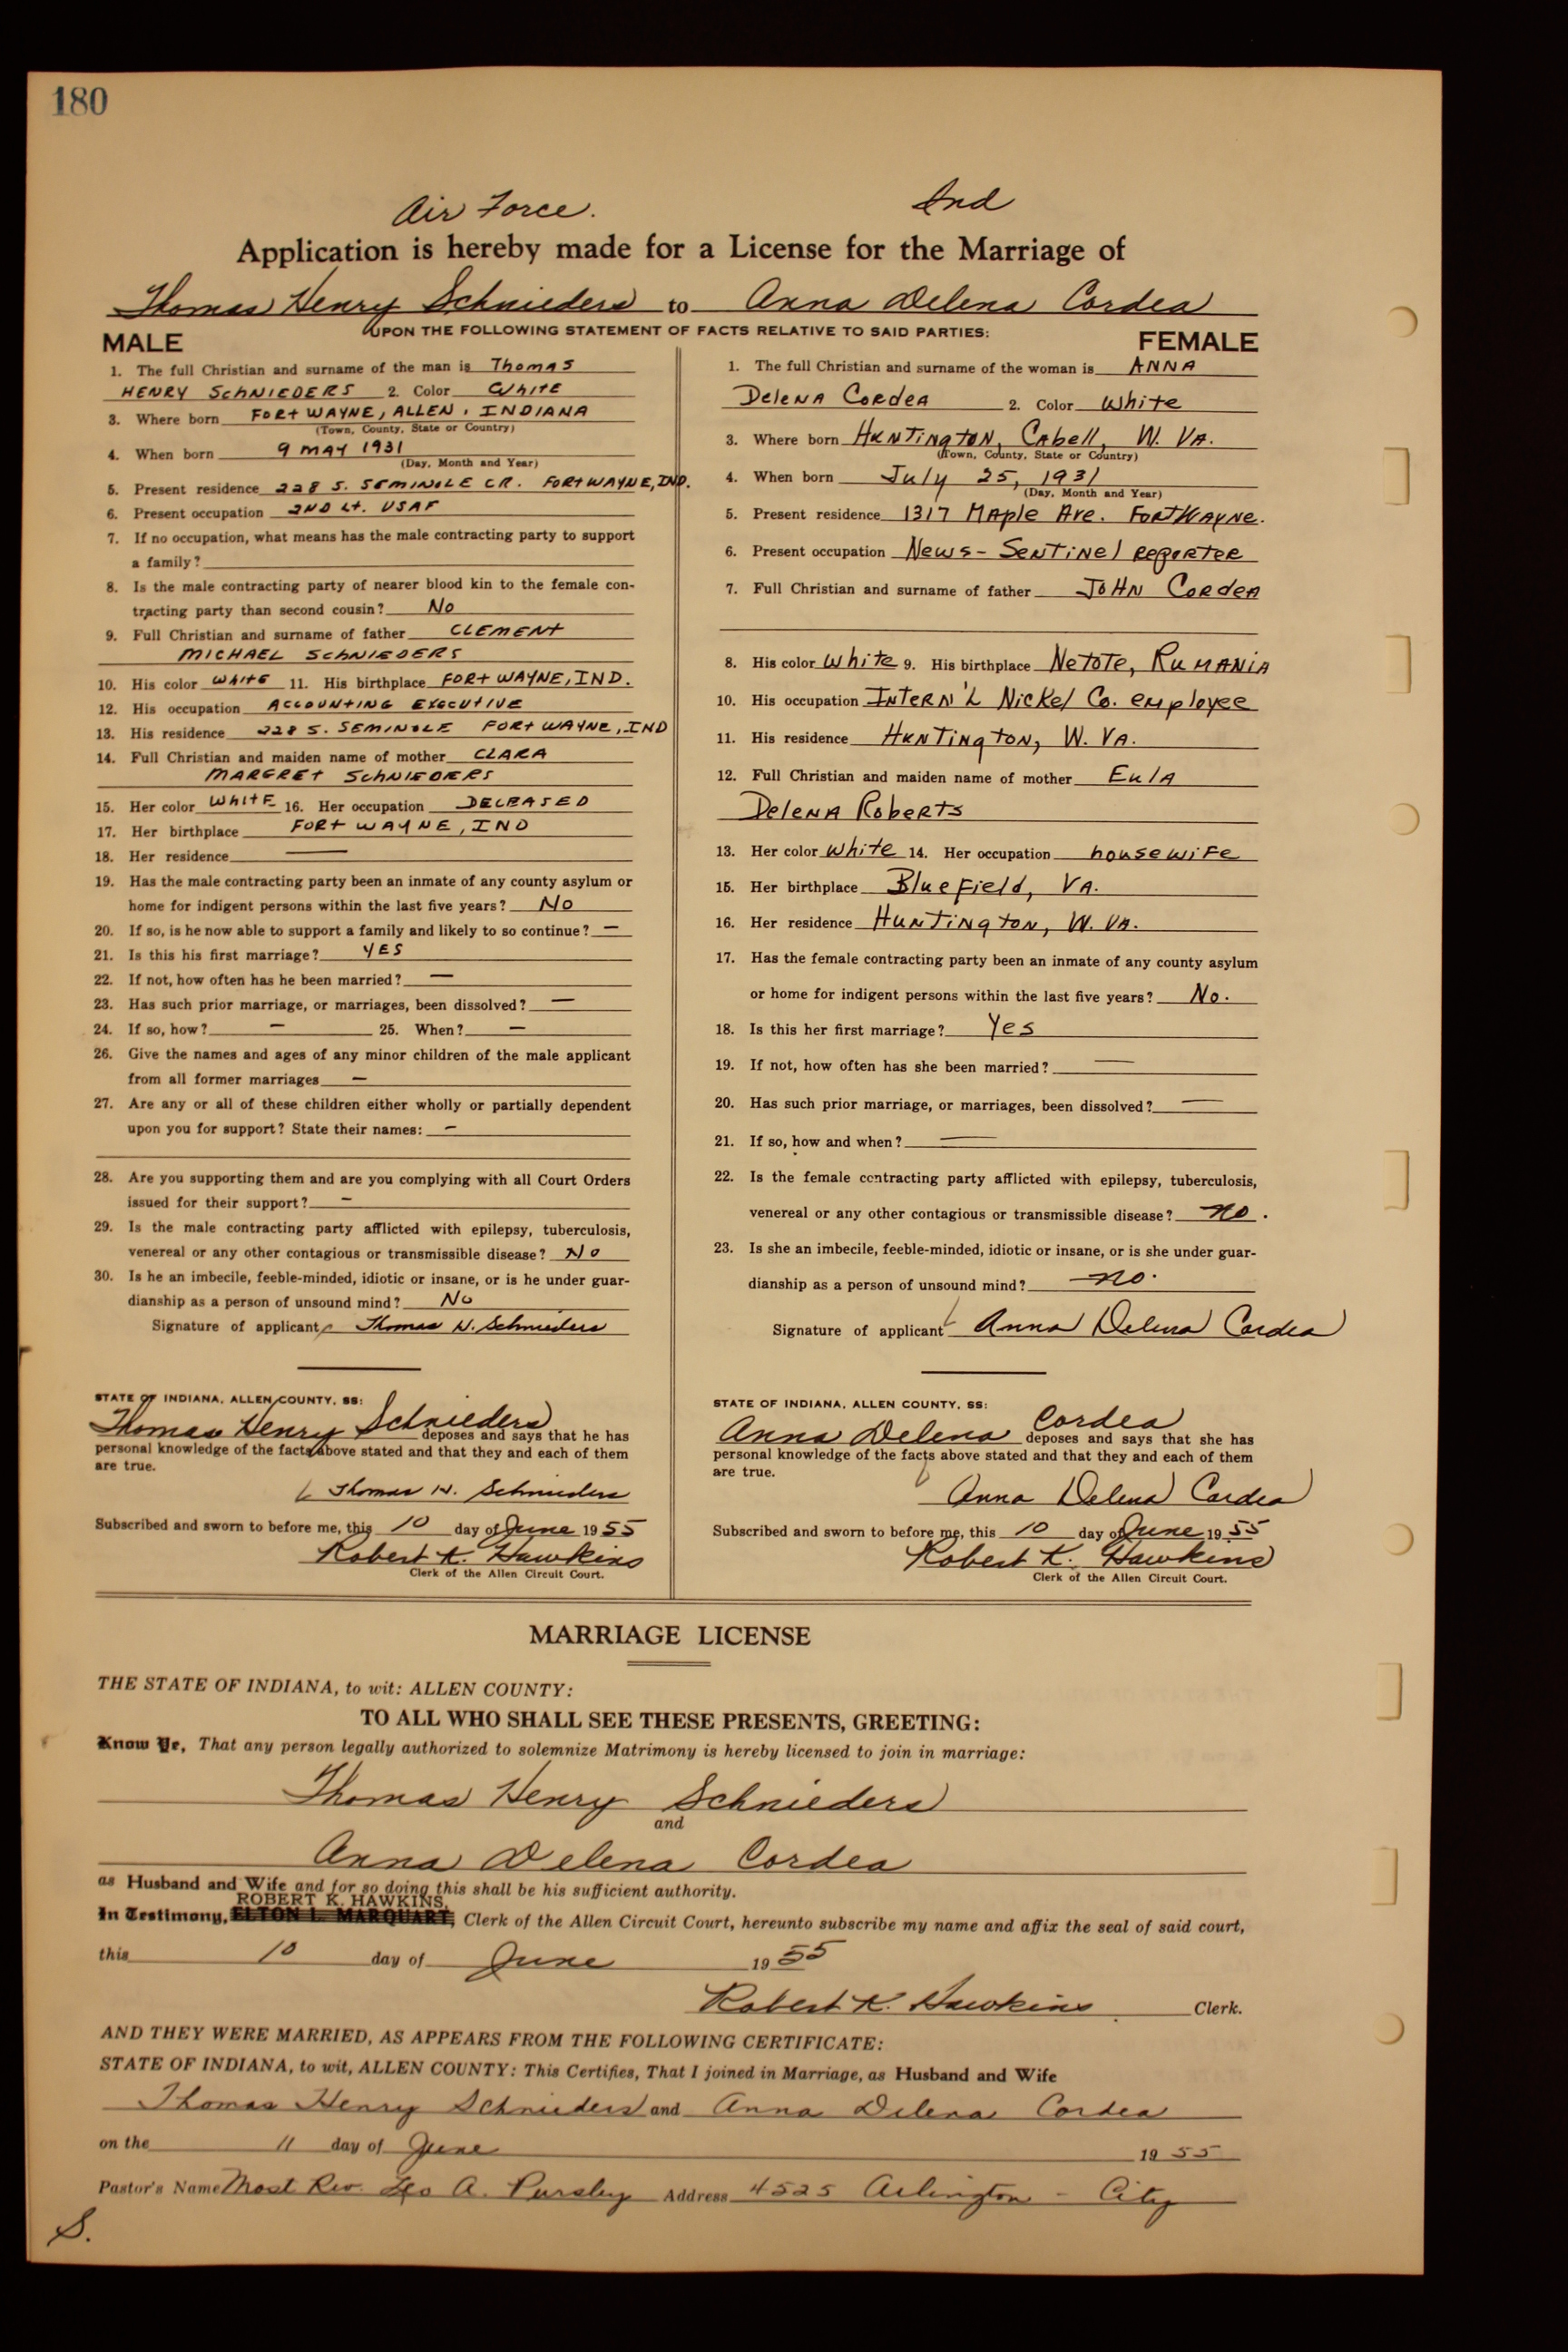 180
Air Force. Ind
Application is hereby made for a License for the Marriage of
Thomas Henry Schnieders to Anna Delena Cordea
UPON THE FOLLOWING STATEMENT OF FACTS RELATIVE TO SAID PARTIES:
MALE
1. The full Christian and surname of the man is Thomas
HENRY SCHNIEDERS 2. Color White
3. Where born FORT WAYNE, ALLEN, INDIANA
(Town, County, State or Country)
4. When born 9 MAY 1931
(Day, Month and Year)
5. Present residence 228 S. SEMINOLE CR. FORT WAYNE, IND.
6. Present occupation 2ND LT. USAF
7. If no occupation, what means has the male contracting party to support
a family?
8. Is the male contracting party of nearer blood kin to the female con-
tracting party than second cousin? No
9. Full Christian and surname of father CLEMENT
MICHAEL SCHNIEDERS
10. His color WHITE 11. His birthplace FORT WAYNE, IND.
12. His occupation ACCOUNTING EXECUTIVE
13. His residence 228 S. SEMINOLE FORT WAYNE, IND
14. Full Christian and maiden name of mother CLARA
MARGRET SCHNIEDERS
15. Her color WHITE 16. Her occupation DECEASED
17. Her birthplace FORT WAYNE, IND
18. Her residence —
19. Has the male contracting party been an inmate of any county asylum or
home for indigent persons within the last five years? No
20. If so, is he now able to support a family and likely to so continue? —
21. Is this his first marriage? YES
22. If not, how often has he been married? —
23. Has such prior marriage, or marriages, been dissolved? —
24. If so, how? — 25. When? —
26. Give the names and ages of any minor children of the male applicant
from all former marriages —
27. Are any or all of these children either wholly or partially dependent
upon you for support? State their names: —
28. Are you supporting them and are you complying with all Court Orders
issued for their support? —
29. Is the male contracting party afflicted with epilepsy, tuberculosis,
venereal or any other contagious or transmissible disease? No
30. Is he an imbecile, feeble-minded, idiotic or insane, or is he under guar-
dianship as a person of unsound mind? No
Signature of applicant Thomas H. Schnieders
STATE OF INDIANA, ALLEN COUNTY, SS:
Thomas Henry Schnieders deposes and says that he has
personal knowledge of the facts above stated and that they and each of them
are true.
Thomas H. Schnieders
Subscribed and sworn to before me, this 10 day of June 1955
Robert K. Hawkins
Clerk of the Allen Circuit Court.
FEMALE
1. The full Christian and surname of the woman is ANNA
DeleNA CordeA 2. Color White
3. Where born HUNTINgTON, CAbell, W. VA.
(Town, County, State or Country)
4. When born July 25, 1931
(Day, Month and Year)
5. Present residence 1317 MAple Ave. FortWAyne.
6. Present occupation News-SentiNel reporter
7. Full Christian and surname of father JOHN CordeA
8. His color White 9. His birthplace Netote, RUMANIA
10. His occupation INterN'L Nickel Co. employee
11. His residence HUNTINgTON, W. VA.
12. Full Christian and maiden name of mother EulA
DeleNA Roberts
13. Her color White 14. Her occupation housewife
15. Her birthplace Bluefield, VA.
16. Her residence HUNTINgTON, W. VA.
17. Has the female contracting party been an inmate of any county asylum
or home for indigent persons within the last five years? No.
18. Is this her first marriage? Yes
19. If not, how often has she been married? —
20. Has such prior marriage, or marriages, been dissolved? —
21. If so, how and when? —
22. Is the female contracting party afflicted with epilepsy, tuberculosis,
venereal or any other contagious or transmissible disease? no.
23. Is she an imbecile, feeble-minded, idiotic or insane, or is she under guar-
dianship as a person of unsound mind? no.
Signature of applicant Anna Delena Cordea
STATE OF INDIANA, ALLEN COUNTY, SS:
Anna Delena Cordea deposes and says that she has
personal knowledge of the facts above stated and that they and each of them
are true.
Anna Delena Cordea
Subscribed and sworn to before me, this 10 day of June 1955
Robert K. Hawkins
Clerk of the Allen Circuit Court.
MARRIAGE LICENSE
THE STATE OF INDIANA, to wit: ALLEN COUNTY:
TO ALL WHO SHALL SEE THESE PRESENTS, GREETING:
Know Ye, That any person legally authorized to solemnize Matrimony is hereby licensed to join in marriage:
Thomas Henry Schnieders
and
Anna Delena Cordea
as Husband and Wife and for so doing this shall be his sufficient authority.
ROBERT K. HAWKINS,
In Testimony, ELTON L. MARQUART, Clerk of the Allen Circuit Court, hereunto subscribe my name and affix the seal of said court,
this 10 day of June 1955
Robert K. Hawkins Clerk.
AND THEY WERE MARRIED, AS APPEARS FROM THE FOLLOWING CERTIFICATE:
STATE OF INDIANA, to wit, ALLEN COUNTY: This Certifies, That I joined in Marriage, as Husband and Wife
Thomas Henry Schnieders and Anna Delena Cordea
on the 11 day of June 1955
Pastor's Name Most Rev. Leo A. Pursley Address 4525 Arlington - City
S.